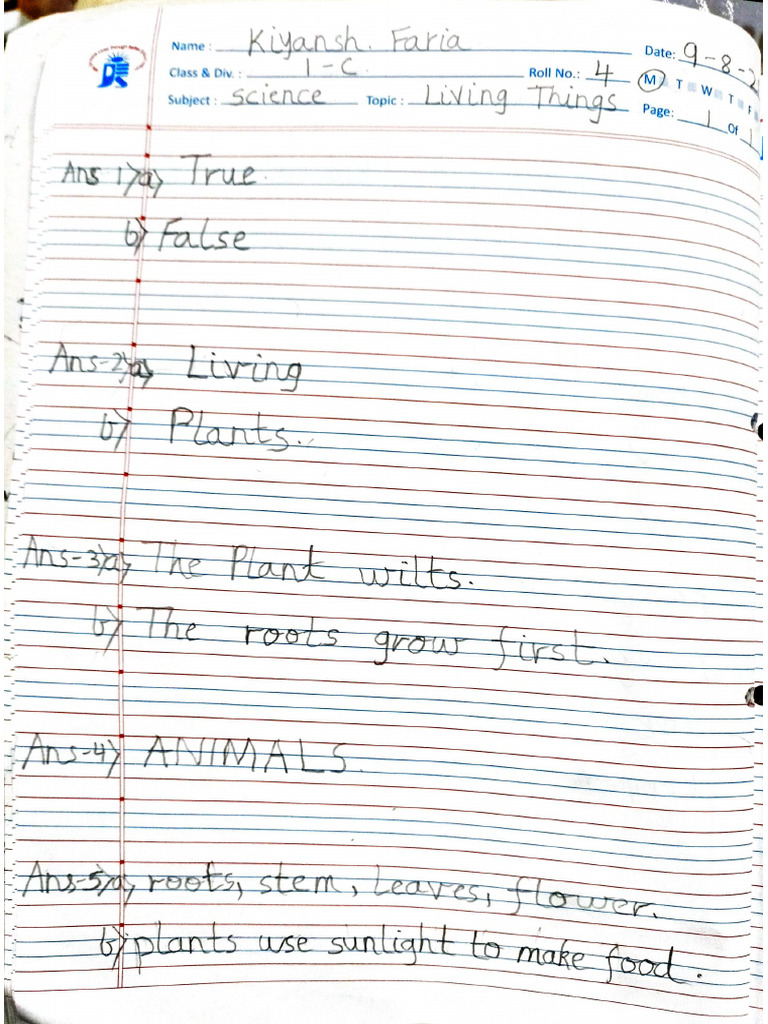 Name : Kiyansh. Faria
Date: 9-8-2
Class & Div. : 1-C.
Roll No.: 4
M T W T F
Subject : science
Topic : Living Things
Page: 1 Of 1
Ans 1)a) True.
b) False
Ans-2)a) Living
b) Plants.
Ans-3)a) The Plant wilts.
b) The roots grow first.
Ans-4) ANIMALS.
Ans-5)a) roots, stem, Leaves, flower.
b) plants use sunlight to make food.